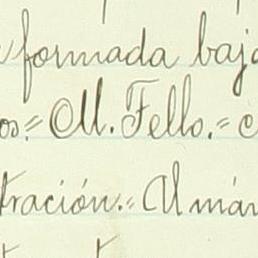 formada bajo
os.= M. Fello.= c
tración.= Umán